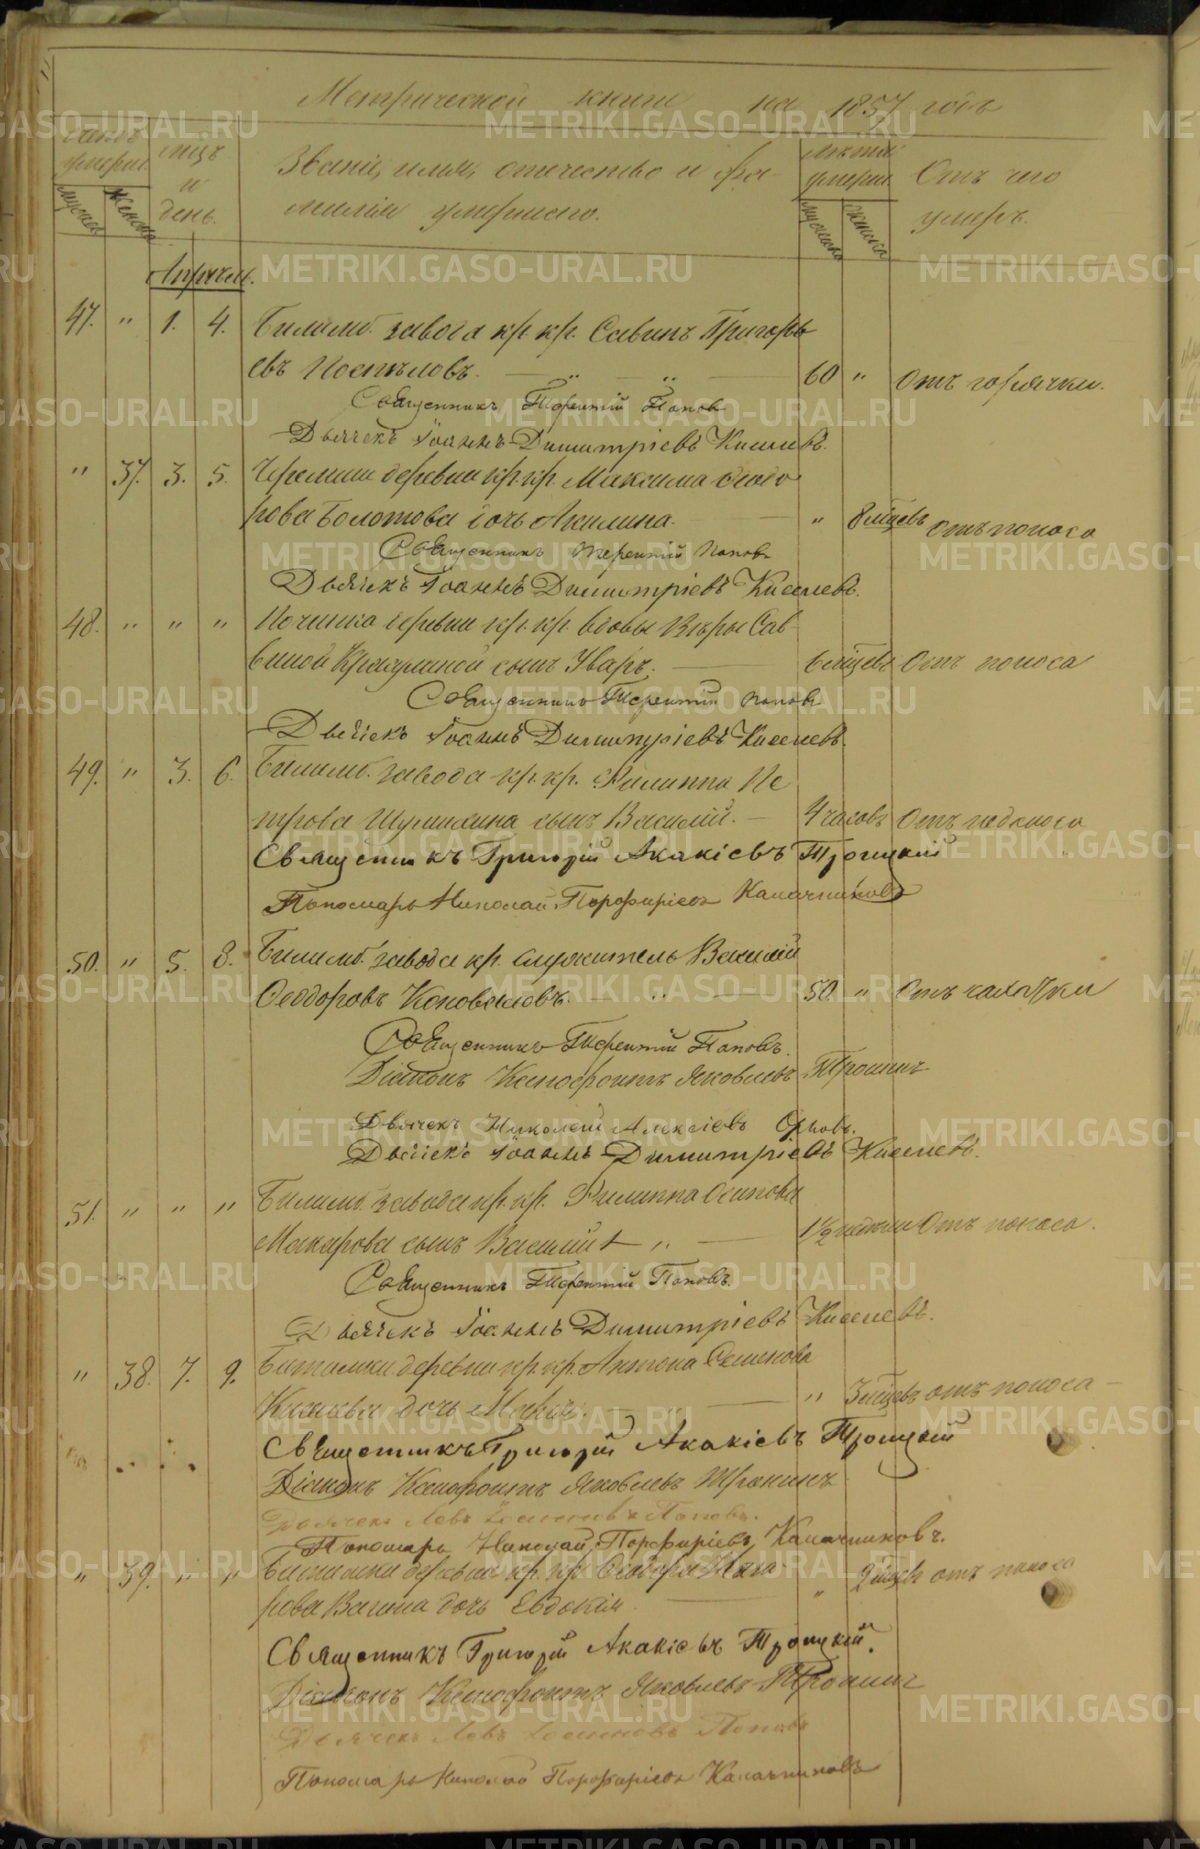 Метрической книги на 1857 годъ
Счетъ умерш.
Мѣсяцъ и день.
Званіе, имя, отчество и фа-
милія умершаго.
Лѣта умерш.
Отъ чего
умеръ.
мужеска
женска
мужеска
женска
Апрѣль.
47. " 1. 4. Билимб. завода кр. кр. Савинъ Григорь
евъ Поспѣловъ. 60 " Отъ горячки.
Священникъ Терентій Поповъ
Дьячекъ Іоаннъ Димитріевъ Киселевъ.
" 37. 3. 5. Черемши деревни кр. кр. Максима Ѳеодо
рова Болотова дочь Акилина. " 8 мѣсцевъ Отъ поноса
Священникъ Терентій Поповъ
Дьячекъ Іоаннъ Димитріевъ Киселевъ.
48. " " " Починка деревни кр. кр. вдовы Вѣры Сав-
виной сынъ Уваръ. 6 мѣсцевъ Отъ поноса
Священникъ Терентій Поповъ
Дьячекъ Іоаннъ Димитріевъ Киселевъ.
49. " 3. 6. Билимб. завода кр. кр. Филиппа Пе
трова сынъ Василій. 4 часовъ Отъ родимца
Священникъ Григорій Акакіевъ Троицкій
Пономарь Николай Порфиріевъ Калачниковъ
50. " 5. 8. Билимб. завода кр. служитель Василій
Ѳеодоровъ Коноваловъ. 50. " Отъ чахотки
Священникъ Терентій Поповъ.
Діаконъ Ксенофонтъ Яковлевъ Тронинъ
Дьячекъ Николай Алексіевъ Орловъ.
Дьячекъ Іоаннъ Димитріевъ Киселевъ.
51. " " " Билимб. завода кр. кр. Филиппа Осипова
Макарова сынъ Василій " 1½ недѣли Отъ поноса.
Священникъ Терентій Поповъ.
Дьячекъ Іоаннъ Димитріевъ Киселевъ.
" 38. 7. 9. Битимки деревни кр. кр. Антона Семенова
дочь " 3 мѣсцевъ отъ поноса
Священникъ Григорій Акакіевъ Троицкій
Діаконъ Ксенофонтъ Яковлевъ Тронинъ
Дьячекъ Левъ Іоанновъ Поповъ.
Пономарь Николай Порфиріевъ Калачниковъ.
" 39. " " Битимки деревни кр. кр. Ѳеодора Мака
рова Вагина дочь Евдокія " 2 мѣсцевъ отъ поноса
Священникъ Григорій Акакіевъ Троицкій.
Діаконъ Ксенофонтъ Яковлевъ Тронинъ
Дьячекъ Левъ Іоанновъ Поповъ
Пономарь Николай Порфиріевъ Калачниковъ
METRIKI.GASO-URAL.RU